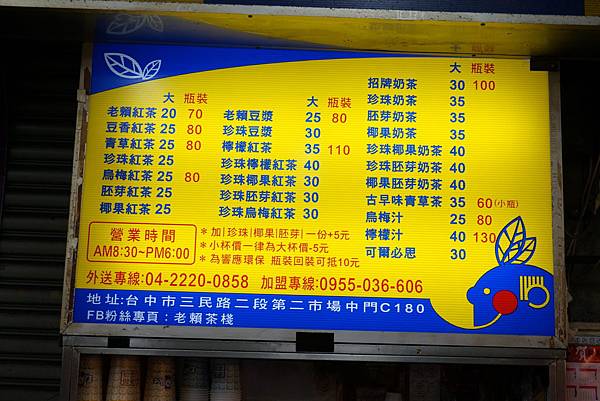 大 瓶裝
老賴紅茶 20 70
豆香紅茶 25 80
青草紅茶 25 80
珍珠紅茶 25
烏梅紅茶 25 80
胚芽紅茶 25
椰果紅茶 25
大 瓶裝
老賴豆漿 25 80
珍珠豆漿 30
檸檬紅茶 35 110
珍珠檸檬紅茶 40
珍珠椰果紅茶 30
珍珠胚芽紅茶 30
珍珠烏梅紅茶 30
大 瓶裝
招牌奶茶 30 100
珍珠奶茶 35
胚芽奶茶 35
椰果奶茶 35
珍珠椰果奶茶 40
珍珠胚芽奶茶 40
椰果胚芽奶茶 40
古早味青草茶 35 60(小瓶)
烏梅汁 25 80
檸檬汁 40 130
可爾必思 30
營業時間
AM8:30~PM6:00
*加|珍珠|椰果|胚芽|一份+5元
*小杯價一律為大杯價-5元
*為響應環保 瓶裝回裝可抵10元
外送專線:04-2220-0858 加盟專線:0955-036-606
地址:台中市三民路二段第二市場中門C180
FB粉絲專頁:老賴茶棧